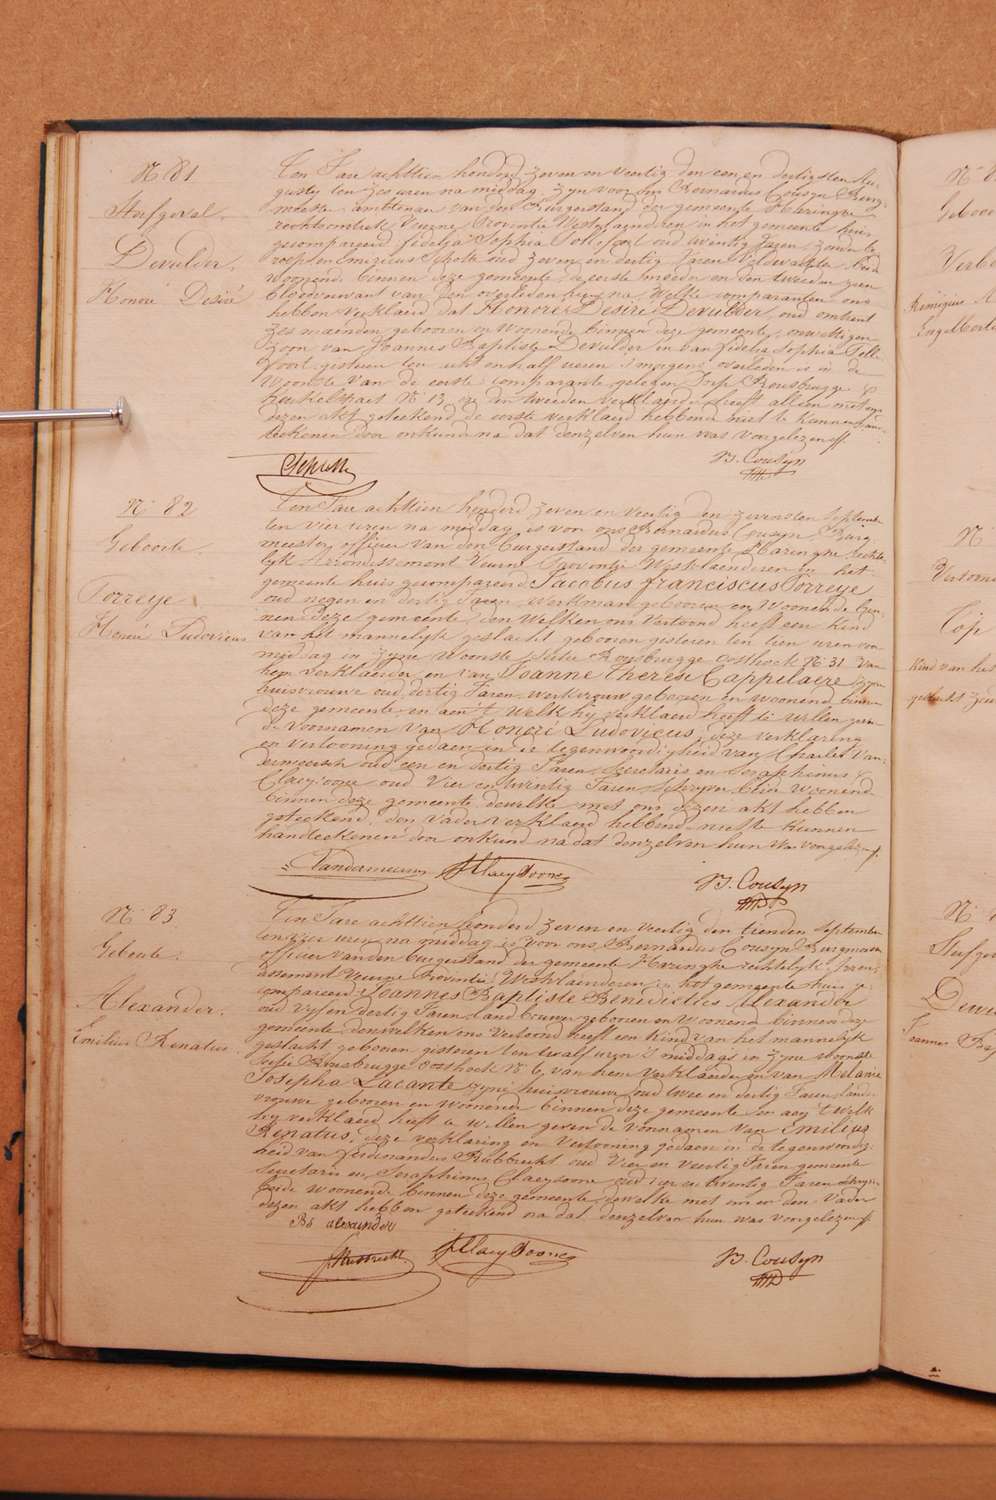 N 81
Sterfgeval.
Devulder.
Honoré Desiré
Ten Jare achttien honderd zeven en veertig den een en dertigsten Au-
gusty ten zes uren na middag, zyn voor ons Bernardus Cousyn Burg-
meester ambtenaer van den Burgerstand der gemeente Haringhe
rechtsomtrek Veurne Provintie Westvlaenderen in het gemeente huis
gecompareerd fidelia Sophia oud twintig Jaren, zonder be-
roep en Scholte oud zeven en dertig Jaren Veldwachter Beide
woonende binnen deze gemeente, de eerste moeder en den tweeden geen
bloedverwant van den overledenen hier na, Welke comparanten ons
hebben verklaerd dat Honoré Desiré Devulder, oud omtrent
zes maenden geboren en Woonende binnen deze gemeente, onwettigen
zoon van Joannes Baptiste Devulder en van fidelia Sophia Tolle-
foort gisteren ten acht en half uren s'morgens overleden is in de
Woonste van de eerste comparante gelegen Dorp Rousbrugge
N 13, en den tweeden verklaerder heeft alleen met ons
dezen akt geteekend de eerste verklaerd hebbende niet te konnen hand-
teekenen door onkunde na dat denzelven hun was voorgelezen ff.
Scholte
B. Cousyn
N 82
Geboorte.
Torreye
Honoré Ludovicus
Ten Jare achttien honderd zeven en veertig den zevensten September
ten vier uren na middag is voor ons Bernardus Cousyn Burg-
meester officier van den burgerstand der gemeente Haringhe rechte-
lyk Arrondissement Veurne Provintie Westvlaenderen in het
gemeente huis gecompareerd Jacobus franciscus Torreye
oud negen en dertig Jaren, werkman geboren en Woonende bin-
nen deze gemeente, den Welken ons vertoond heeft een kind
van het mannelyk geslacht geboren gisteren ten tien uren voor
middag in zyne Woonste sectie Rousbrugge oosthoek N 31 van
hem Verklaerder en van Joanne Therese Cappelaere zyne
huisvrouwe oud dertig Jaren, werkvrouw geboren en woonende binnen
deze gemeente, en aen 't Welk hy verklaerd heeft te willen geven
de Voornamen van Honoré Ludovicus, deze verklaring
en vertooning gedaen in de tegenwoordigheid van Charles Van-
dermeersch oud een en dertig Jaren, secretaris en Seraphinus
Claeysoone oud Vier en twintig Jaren Schryver beide Woonende
binnen deze gemeente dewelke met ons dezen akt hebben
geteekend, den Vader verklaerd hebbende niet te kunnen
handteekenen door onkunde na dat denzelven hun was voorgelezen ff.
Vandermeersch
S Claeysoone
B. Cousyn
N 83
Geboorte.
Alexander.
Emilius Renatus.
Ten Jare achttien honderd zeven en veertig den tienden September
ten vier uren na middag is voor ons Bernardus Cousyn Burgmeester
officier van den burgerstand der gemeente Haringhe rechtelyk Arron-
dissement Veurne Provintie Westvlaenderen in het gemeente huis ge-
compareerd Joannes Baptiste Benedictus Alexander
oud vyf en dertig Jaren Landbouwer geboren en Woonend binnen deze
gemeente, den welken ons vertoond heeft een kind van het mannelyk
geslacht geboren gisteren ten twaelf uren s'middags in zyne Woonste
sectie Rousbrugge oosthoek N 6, van hem verklaerder en van Melanie
Josepha Lacante zyne huisvrouwe, oud twee en dertig Jaren Landb-
vrouwe geboren en woonende binnen deze gemeente, en aen 't welk
hy verklaerd heeft te willen geven de Voornamen van Emilius
Renatus, deze verklaring en Vertooning gedaen in de tegenwoordig-
heid van ferdinandus Rubbrecht oud Vier en veertig Jaren gemeente
Secretaris en Seraphinus Claeysoone oud vier en twintig Jaren Schryver
beide woonende binnen deze gemeente dewelke met ons en den Vader
dezen akt hebben geteekend na dat denzelven hun was voorgelezen ff.
Bd alexander
f Rubbrecht
S Claeysoone
B. Cousyn
Verton
Kind van het